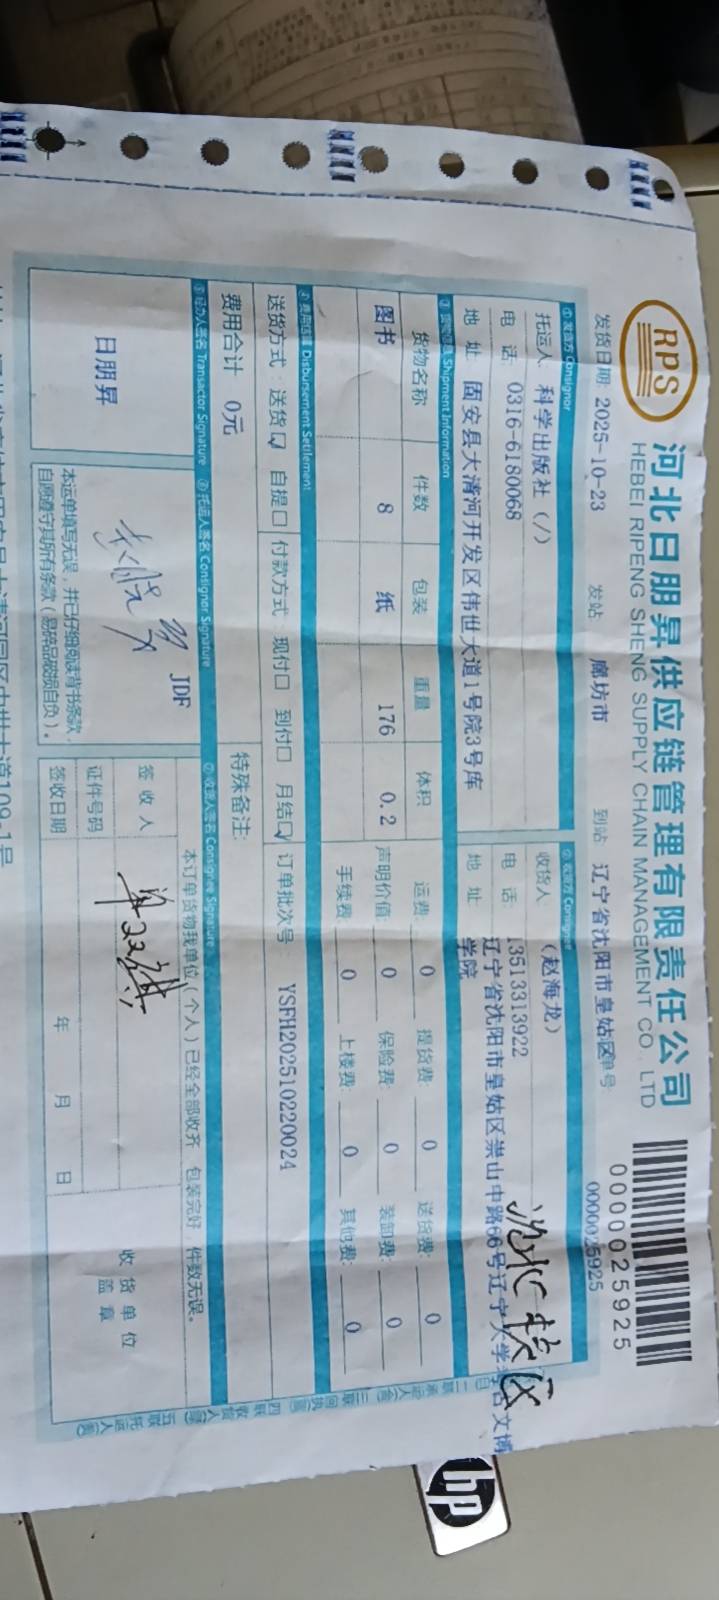 RPS
河北日朋昇供应链管理有限责任公司
HEBEI RIPENG SHENG SUPPLY CHAIN MANAGEMENT CO. LTD
0000025925
发货日期: 2025-10-23 发站 廊坊市 到站 辽宁省沈阳市皇姑区 单号 0000025925
① 发货方 Consignor
托运人 科学出版社 (/)
电 话: 0316-6180068
地 址 固安县大清河开发区伟世大道1号院3号库
② 收货方 Consignee
收货人 (赵海龙)
电 话: 13513313922
沈北校区
地 址 辽宁省沈阳市皇姑区崇山中路66号辽宁大学考古文博
学院
③ 货物信息 Shipment Information
货物名称 件数 包装 重量 体积
图书 8 纸 176 0.2
运费: 0 提货费: 0 送货费: 0
声明价值: 0 保险费: 0 装卸费: 0
手续费: 0 上楼费: 0 其他费: 0
④ 费用结算 Disbursement Settlement
送货方式: 送货☑ 自提□ 付款方式 现付□ 到付□ 月结☑ 订单批次号: YSFH202510220024
费用合计 0元
特殊备注:
⑤ 经办人签名 Transactor Signature
日朋昇
⑥ 托运人签名 Consignor Signature
JDF
本运单填写无误，并已仔细阅读背书条款，
自愿遵守其所有条款(易碎品破损自负)。
⑦ 收货人签名 Consignee Signature
本订单货物我单位(个人)已经全部收齐 包装完好，件数无误。
签收人
证件号码
签收日期 年 月 日
收货单位
盖章
二联承运人
三联回执
四联收货人
五联托运人
109-1号
hp